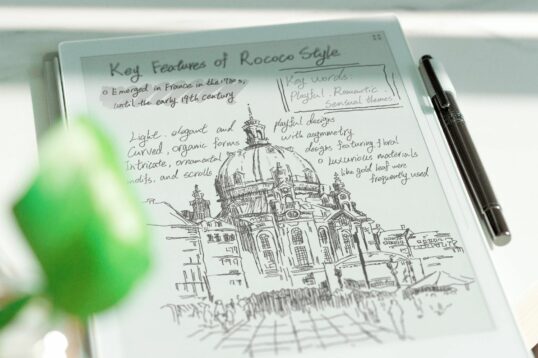 Key Features of Rococo Style
Emerged in France in the 1730s,
until the early 19th century
Key words:
Playful. Romantic.
Sensual themes.
Light. elegant and
Curved, organic forms
Intricate, ornamental
motifs, and scrolls
playful designs
with asymmetry
designs featuring floral
Luxurious materials
like gold leaf were
frequently used